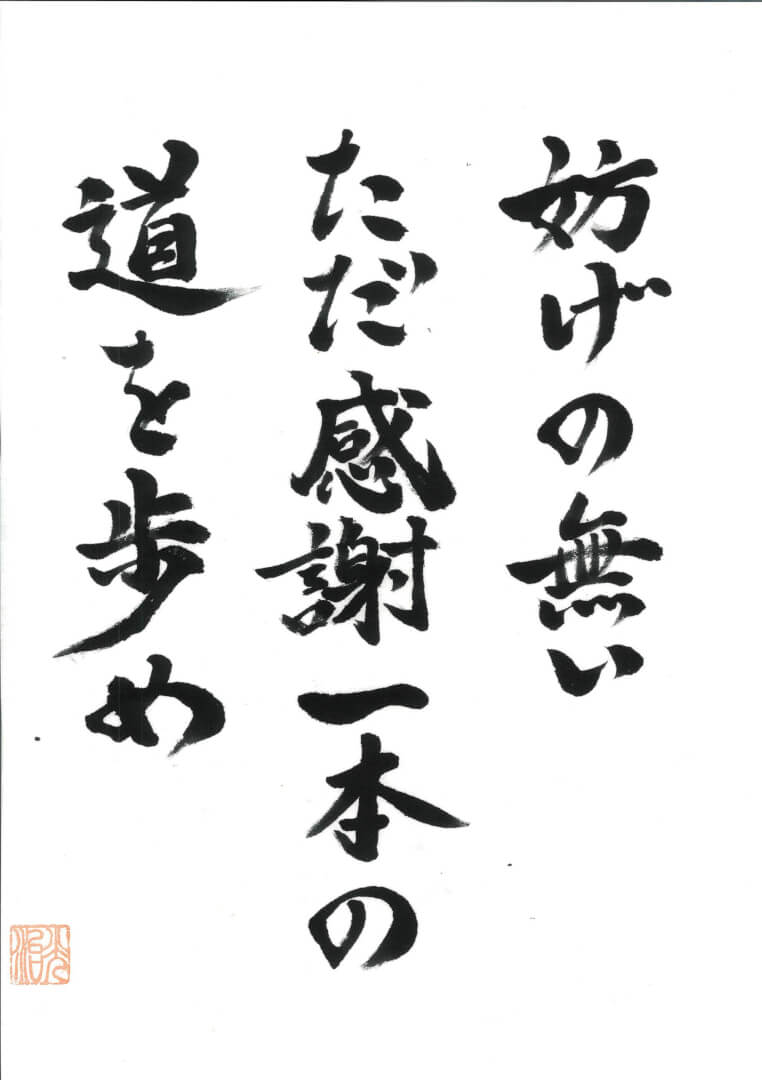 妨げの無い
ただ感謝一本の
道を歩め